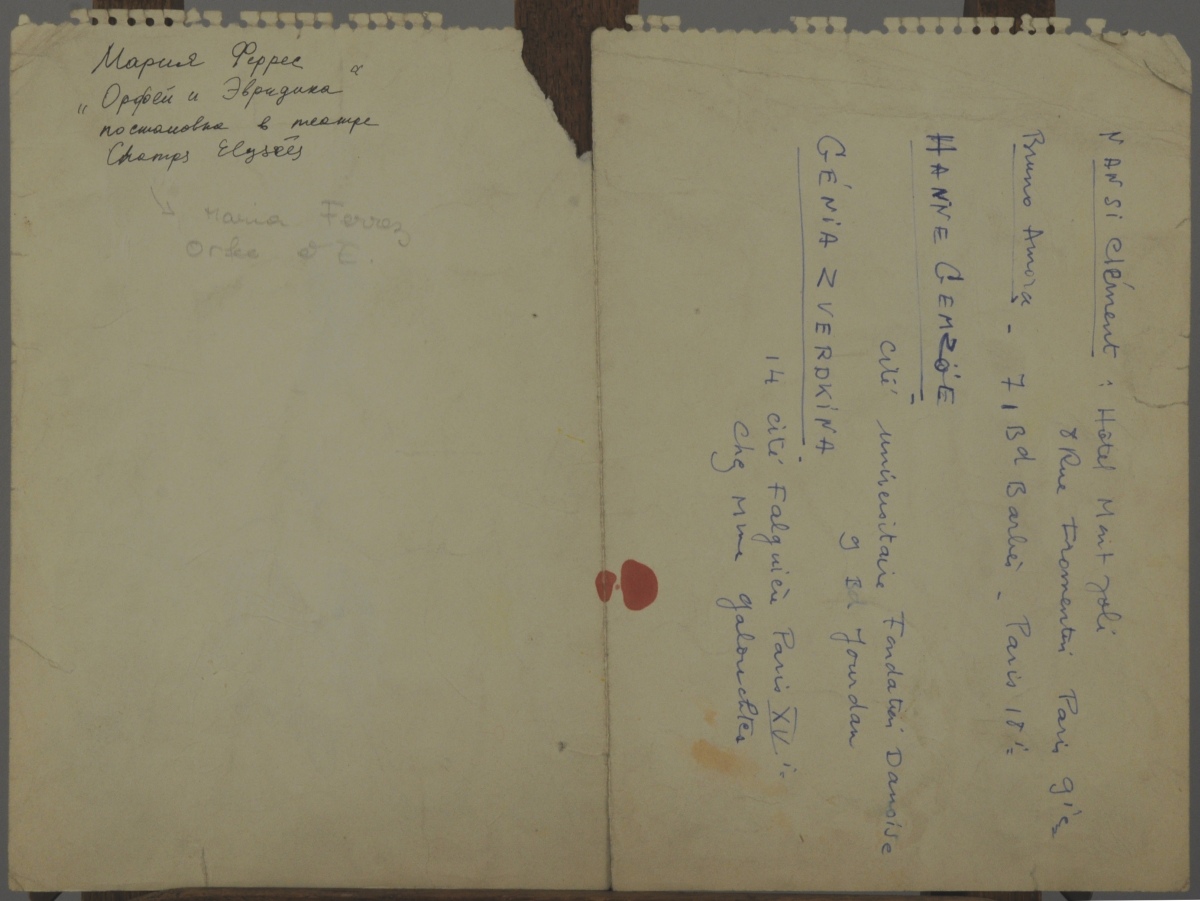 Мария Феррес
„Орфей и Эвридика“
постановка в театре
Champs Elysées
Maria Ferres
Orfeo ed E.
NANSI Clément : Hôtel Mont Joli
8 Rue Fromentin Paris 9ie
Bruno Amora - 71 Bd Barbès - Paris 18ie
HANNE GEMZÖE -
cité universitaire Fondation Danoise
9 Bd Jourdan
GÉNIA ZVERDKINA -
14 cité Falguière Paris XVie
Chez Mme